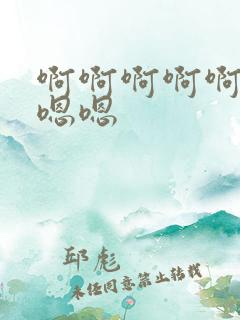 啊啊啊啊啊
嗯嗯
邱彪
未经同意禁止转载